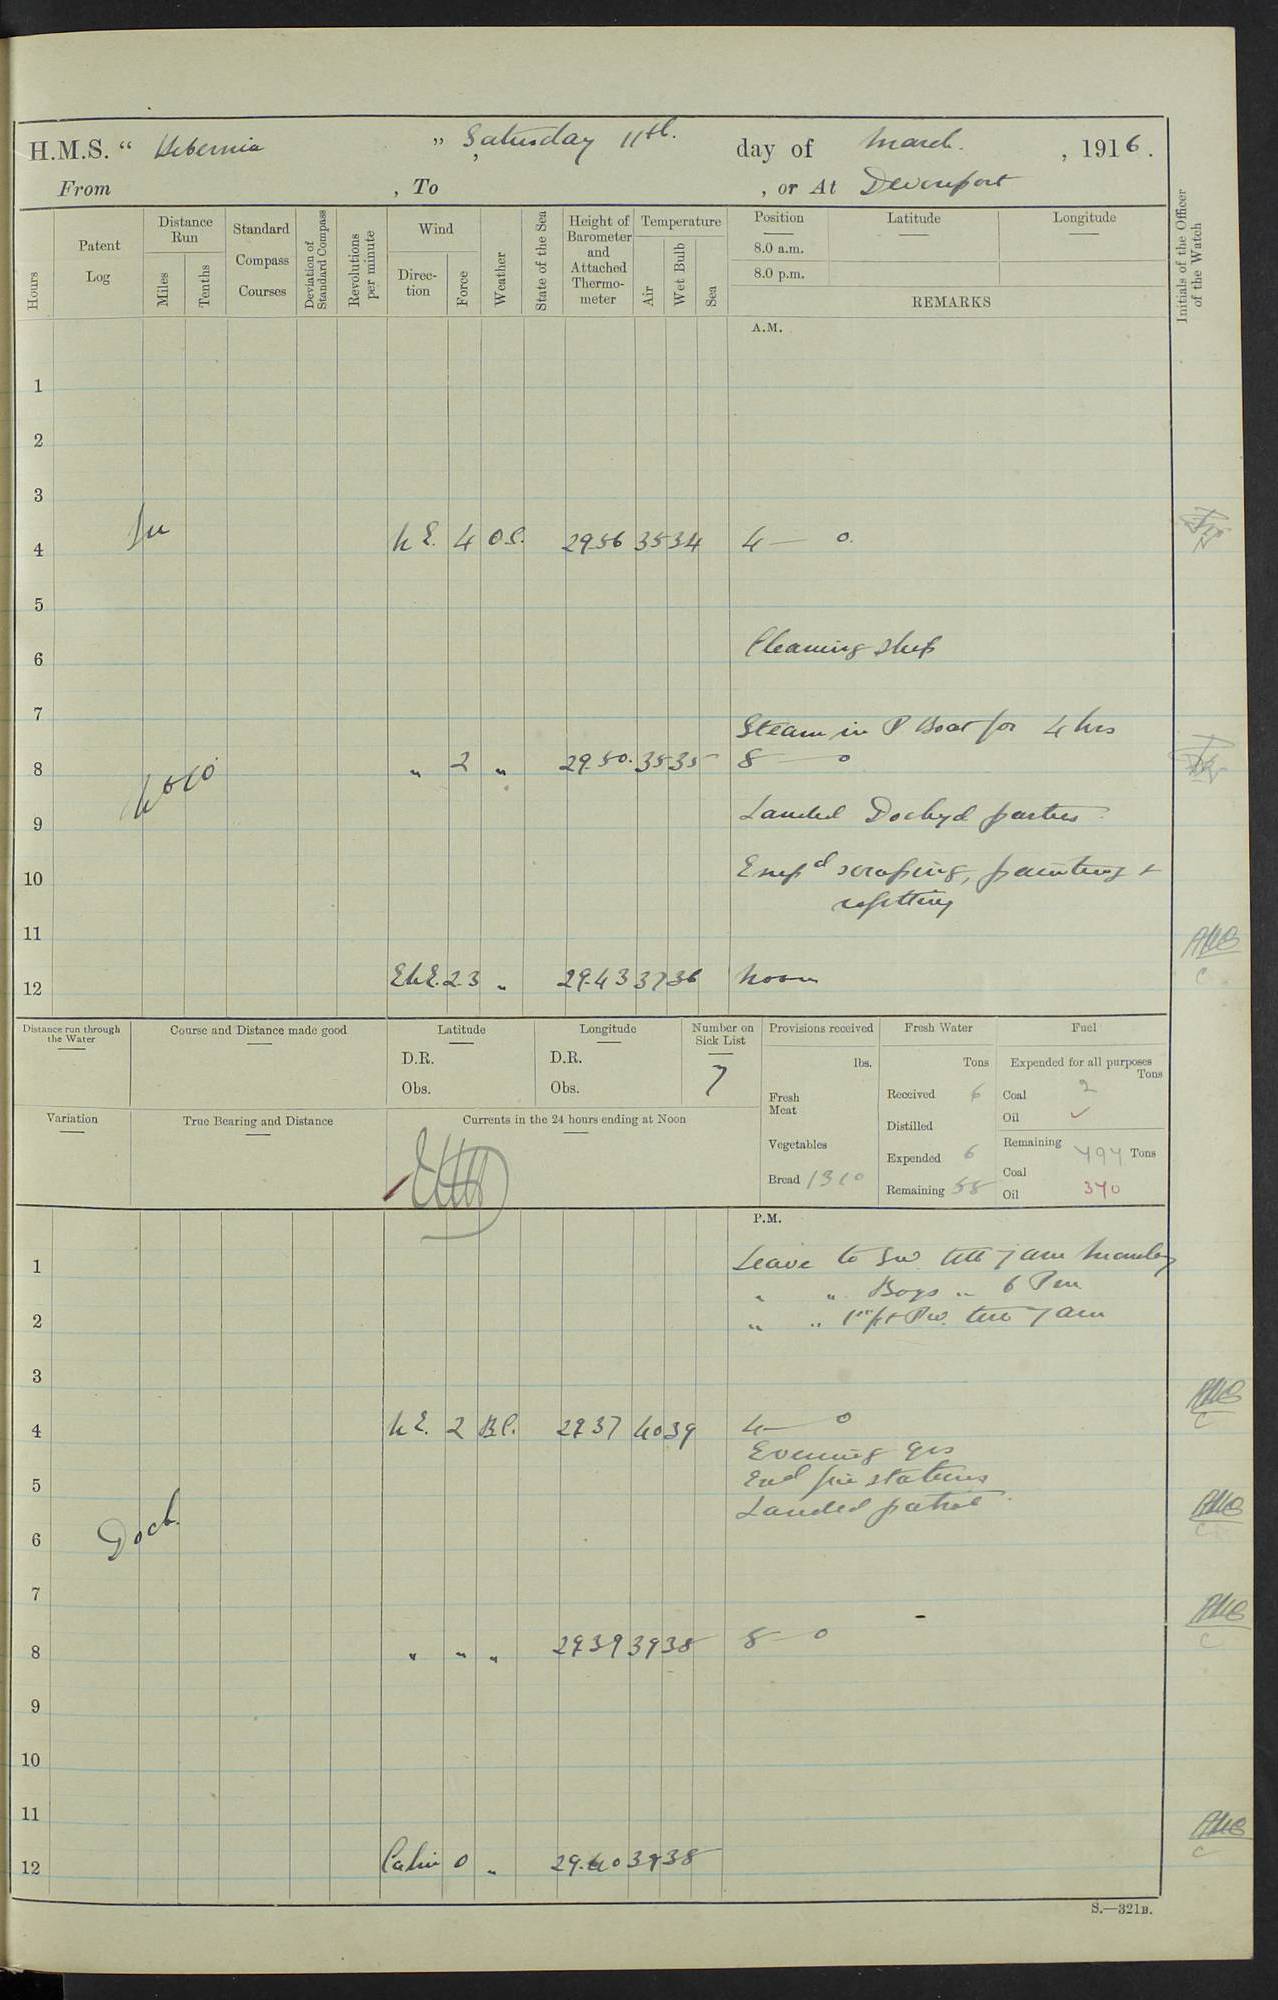 H.M.S. “ Hibernia ” Saturday 11th. day of March. , 1916.
From , To , or At Devonport
Hours
Patent Log
Distance Run
Miles
Tenths
Standard Compass Courses
Deviation of Standard Compass
Revolutions per minute
Wind
Direction
Force
Weather
State of the Sea
Height of Barometer and Attached Thermometer
Temperature
Air
Wet Bulb
Sea
Position
8.0 a.m.
8.0 p.m.
Latitude
Longitude
REMARKS
Initials of the Officer of the Watch
A.M.
1
2
3
In
4 N E. 4 O.C. 29.56 35 34 4 — 0.
5
6 Cleaning ship
7
Steam in P Boat for 4 hrs
8 " 2 " 29.50. 35 35 8 — 0
No 10
9 Landed Dockyd parties
10 Empd scraping, painting +
refitting
11
12 ENE. 2.3 " 29.43 37 36 Noon
Distance run through the Water
Course and Distance made good
Latitude
D.R.
Obs.
Longitude
D.R.
Obs.
Number on Sick List
7
Provisions received
lbs.
Fresh Meat
Vegetables
Bread 1310
Fresh Water
Tons
Received 6
Distilled
Expended 6
Remaining 58
Fuel
Expended for all purposes
Tons
Coal 2
Oil ✓
Remaining
Tons
Coal 494
Oil 370
Variation
True Bearing and Distance
Currents in the 24 hours ending at Noon
P.M.
1 Leave to Sw. till 7 am Monday
" " Boys " 6 Pm
2 " " 1st pt Pw. till 7 am
3
4 N E. 2 B.C. 29.37 40 39 4 — 0
Evening qrs
5 Exd fire stations
Landed patrol
Dock.
6
7
8 " " " 29.39 39 38 8 — 0
9
10
11
12 Calm 0 " 29.40 39 38
S.—321B.